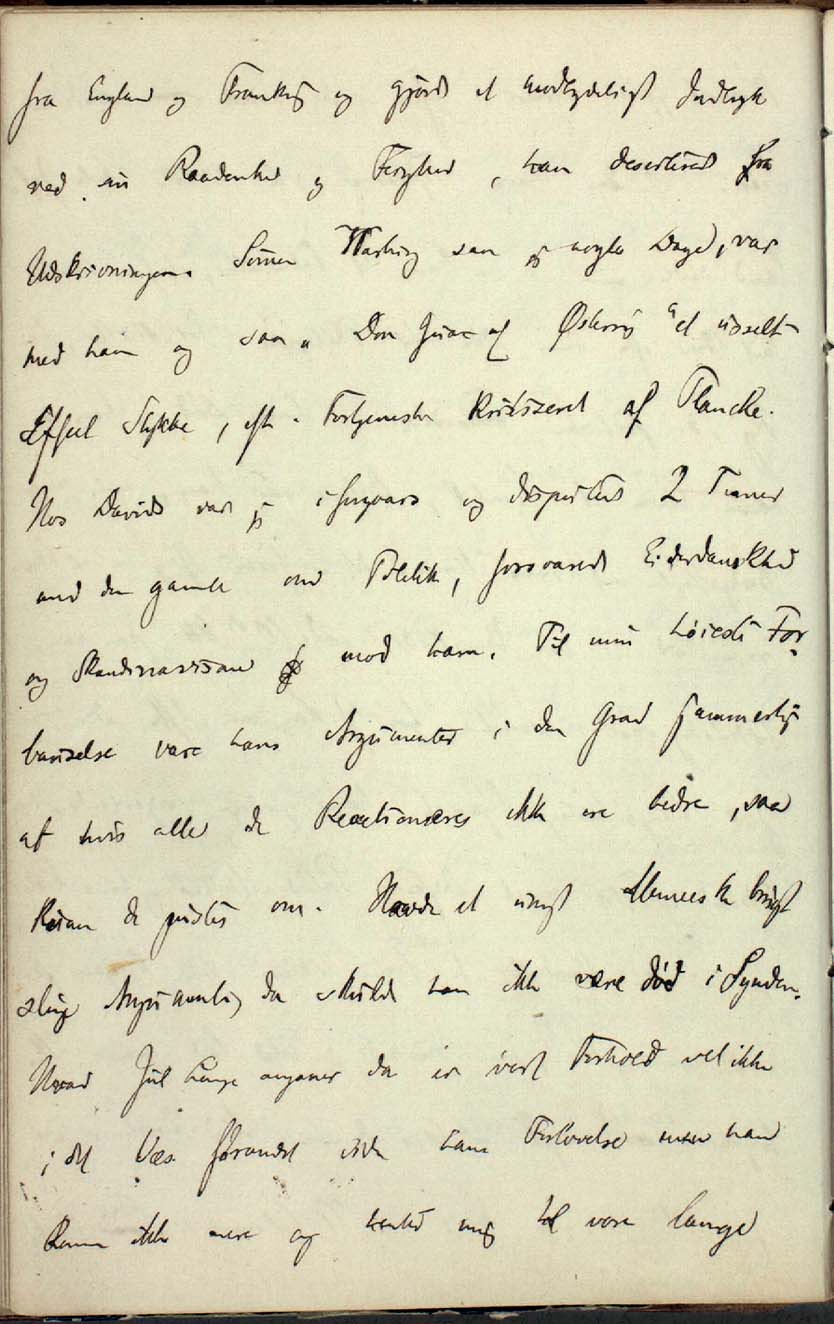 fra England og Frankrig og gjorde et modbydeligt Indtryk
ved sin Raadenhed og Feighed, han deserterede fra
Udskrivningen. Simon Warburg saa jeg nogle Dage, var
med ham og saa „Don Juan af Østerrig“ et usselt
Effect Stykke, efter Fortjeneste kritiseret af Planche.
Hos Davids var jeg iforgaars og disputerede 2 Timer
med den gamle om Politik, forsvarede Eiderdanskhed
og Skandinavisme mod ham. Til min høieste For-
bauselse vare hans Argumenter i den Grad jammerlige
at hvis alle de Reactionæres ikke ere bedre, saa
kan de pustes om. Havde et ungt Menneske brugt
slige Argumenter, da skulde han ikke være død i Synden.
Hvad Jul Lange angaaer da er vort Forhold vel ikke
i det Væs. forandret siden hans Forlovelse men han
kom ikke mere og hented mig til vore lange